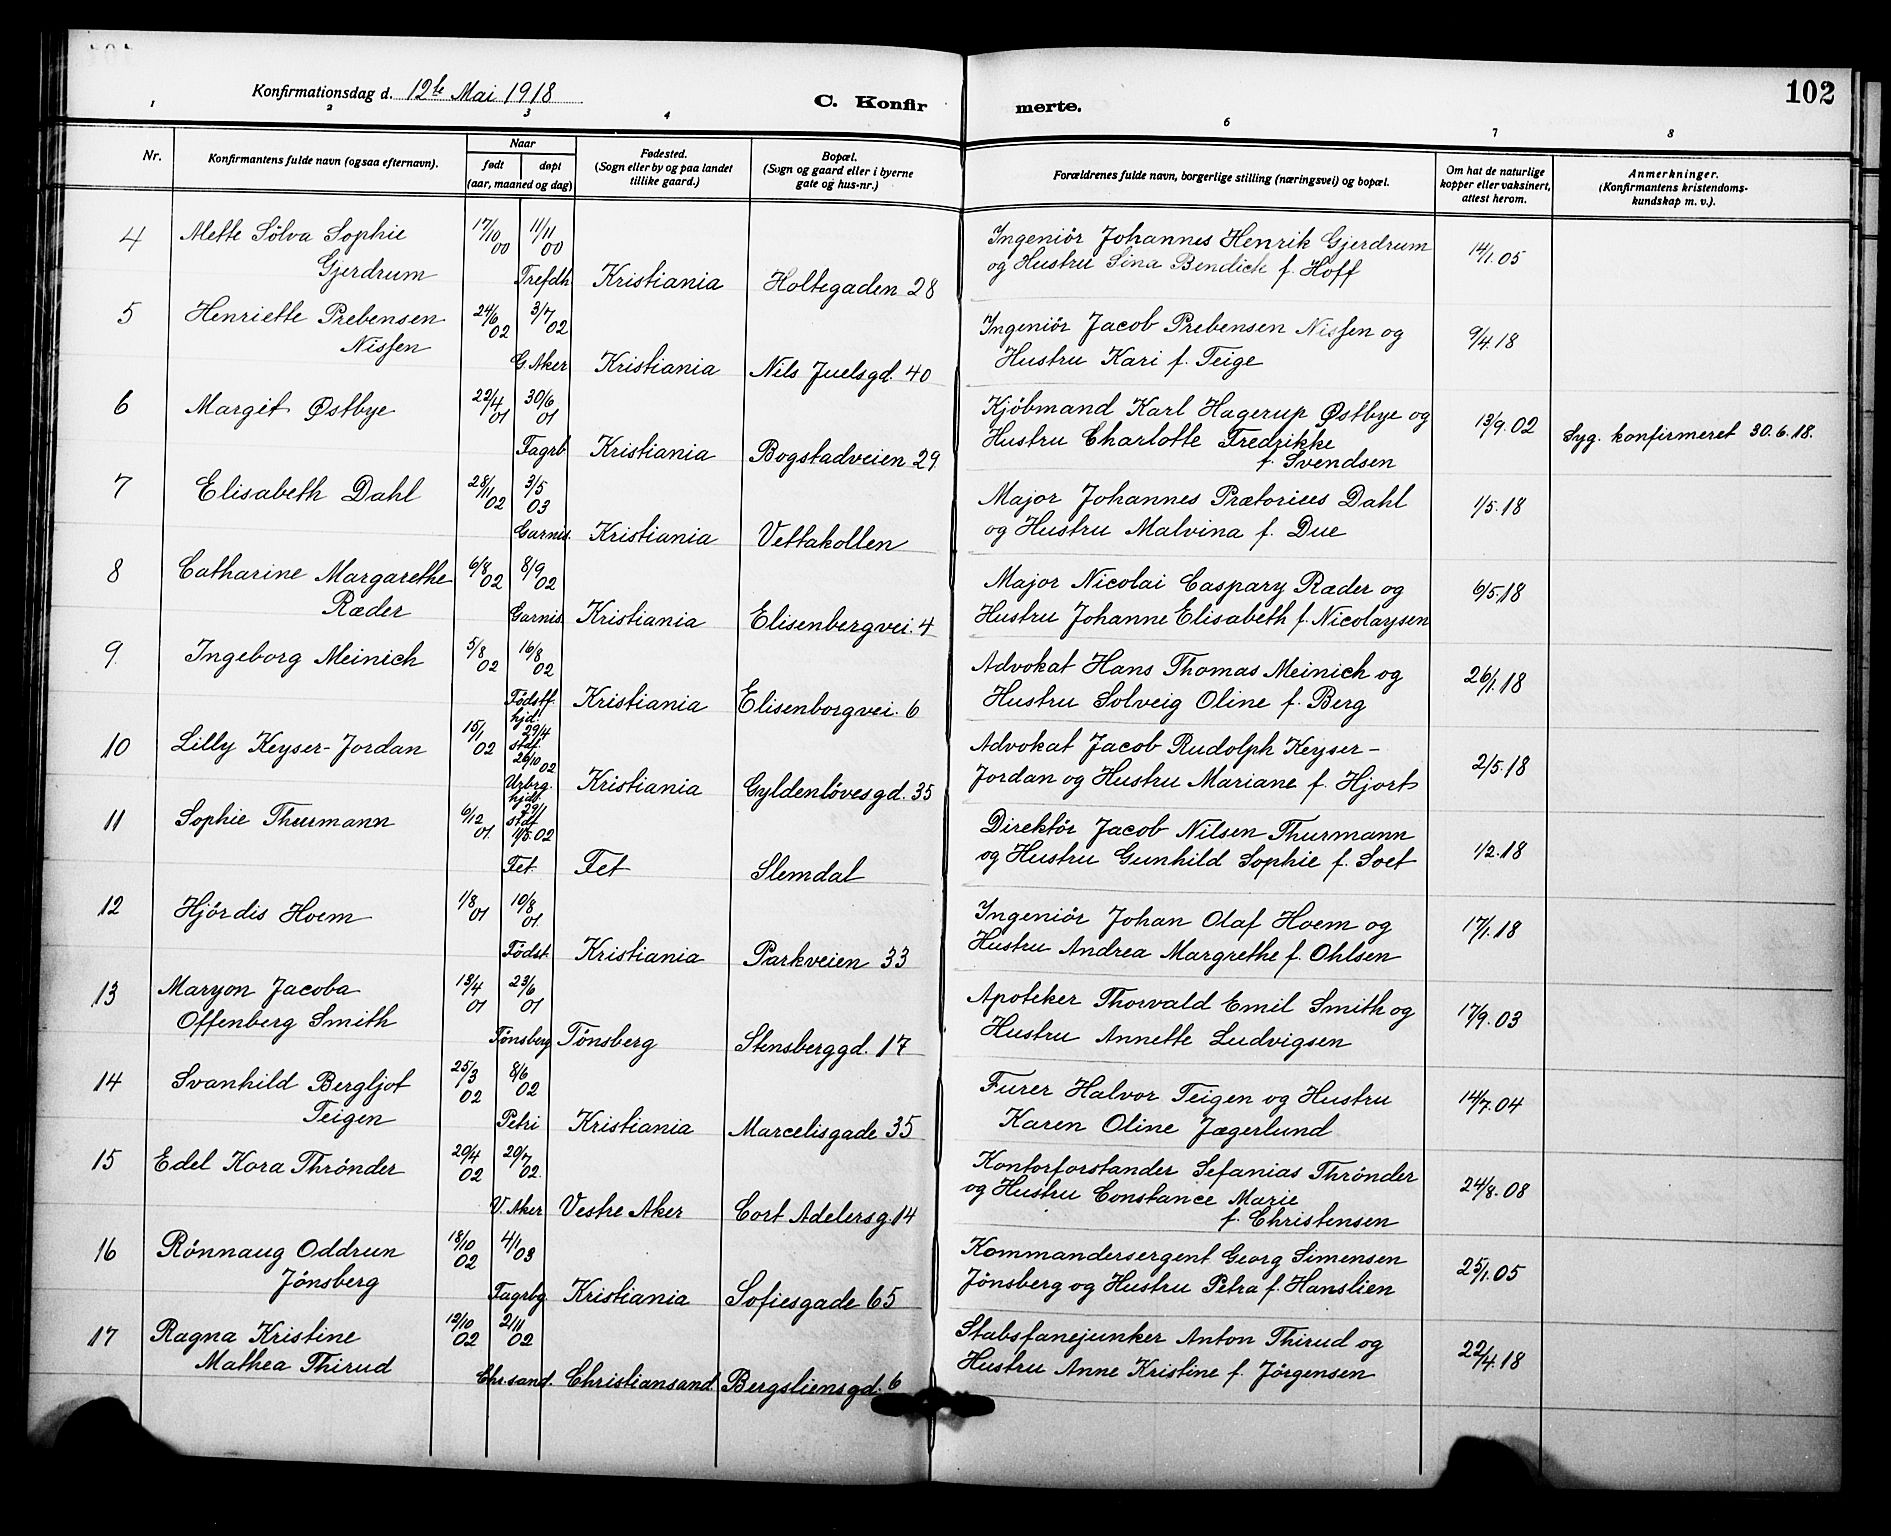 Konfirmationsdag d. 12te Mai 1918
C. Konfir merte.
102
1 2 3 4 6 7 8
Nr.
Konfirmantens fulde navn (ogsaa efternavn).
Naar
født
døpt
(aar, maaned og dag)
Fødested.
(Sogn eller by og paa landet
tillike gaard.)
Bopæl.
(Sogn og gaard eller i byerne
gate og hus-nr.)
Forældrenes fulde navn, borgerlige stilling (næringsvei) og bopæl.
Om hat de naturlige
kopper eller vaksinert,
attest herom.
Anmerkninger.
(Konfirmantens kristendoms-
kundskap m. v.).
4 Mette Sölva Sophie 17/10 00 11/11 00 Ingeniör Johannes Henrik Gjerdrum 14/1.05
Gjerdrum Trefdh Kristiania Holtegaden 28 og Hustru Sina Bendick f. Hoff
5 Henriette Prebensen 24/6 02 3/7 02 Ingeniör Jacob Prebensen Nissen og 9/4.18
Nissen G. Aker Kristiania Nils Juelsgd. 40 Hustru Kari f. Teige
6 Margit Østbye 22/4 01 30/6 01 Kjöbmand Karl Hagerup Østbye og 13/9.02
Fagrb Kristiania Bogstadveien 29 Hustru Charlotte Fredrikke Syg. konfirmeret 30.6.18.
f. Svendsen
7 Elisabeth Dahl 28/11 02 3/5 03 Major Johannes Prætorius Dahl 1/5.18
Garnis. Kristiania Vettakollen og Hustru Malvina f. Due
8 Catharine Margarethe 6/8 02 8/9 02 Major Nicolai Caspary Ræder og 6/5.18
Ræder Garnis. Kristiania Elisenbergvei. 4 Hustru Johanne Elisabeth f. Nicolaysen
9. Ingeborg Meinich 5/8 02 16/8 02 Advokat Hans Thomas Meinich og 26/1.18
Födstf. Kristiania Elisenborgvei. 6 Hustru Solveig Oline f. Berg
10 Lilly Keyser-Jordan 15/1 02 hjd. 29/4 stdf. 26/10 02 Advokat Jacob Rudolph Keyser- 2/5.18
Uzbrg. Kristiania Gyldenlövesgd. 35 Jordan og Hustru Mariane f. Hjort
11 Sophie Thurmann 6/12 01. hjdb. 29/1 stdf 4/5.02 Direktör Jacob Nilsen Thurmann 1/2.18
Fet. Fet Slemdal og Hustru Gunhild Sophie f. Soet
12 Hjördis Hoem 1/8 01 10/8 01. Ingeniör Johan Olaf Hoem og 17/1.18
Födst. Kristiania Parkveien 33 Hustru Andrea Margrethe f. Ohlsen
13 Maryon Jacoba 13/4 01 23/6 01 Apoteker Thorvald Emil Smith og 17/9.03
Offenberg Smith Tönsberg Tönsberg Stensberggd. 17 Hustru Annette Ludvigsen
14 Svanhild Bergljot 25/3 02 8/6 02 Furer Halvor Teigen og Hustru 14/7.04
Teigen Petri Kristiania Marcelisgade 35 Karen Oline Jægerlund
15 Edel Kora Thrönder 20/4 02 20/7 02. Kontorforstander Sefanias Thrönder 24/8.08
V. Aker Vestre Aker Cort Adelersg. 14 og Hustru Constance Marie
f. Christensen
16 Rönnaug Oddrun 18/10 02 4/1 03 Kommandersergent Georg Simensen 25/1.05
Jönsberg Fagrbg Kristiania Sofiesgade 65 Jönsberg og Hustru Petra f. Hanslien
17 Ragna Kristine 12/10 02 2/11 02 Stabsfanejunker Anton Thirud og 22/4.18
Mathea Thirud Chr.sand. Christiansand Bergsliensgd. 6 Hustru Anne Kristine f. Jörgensen